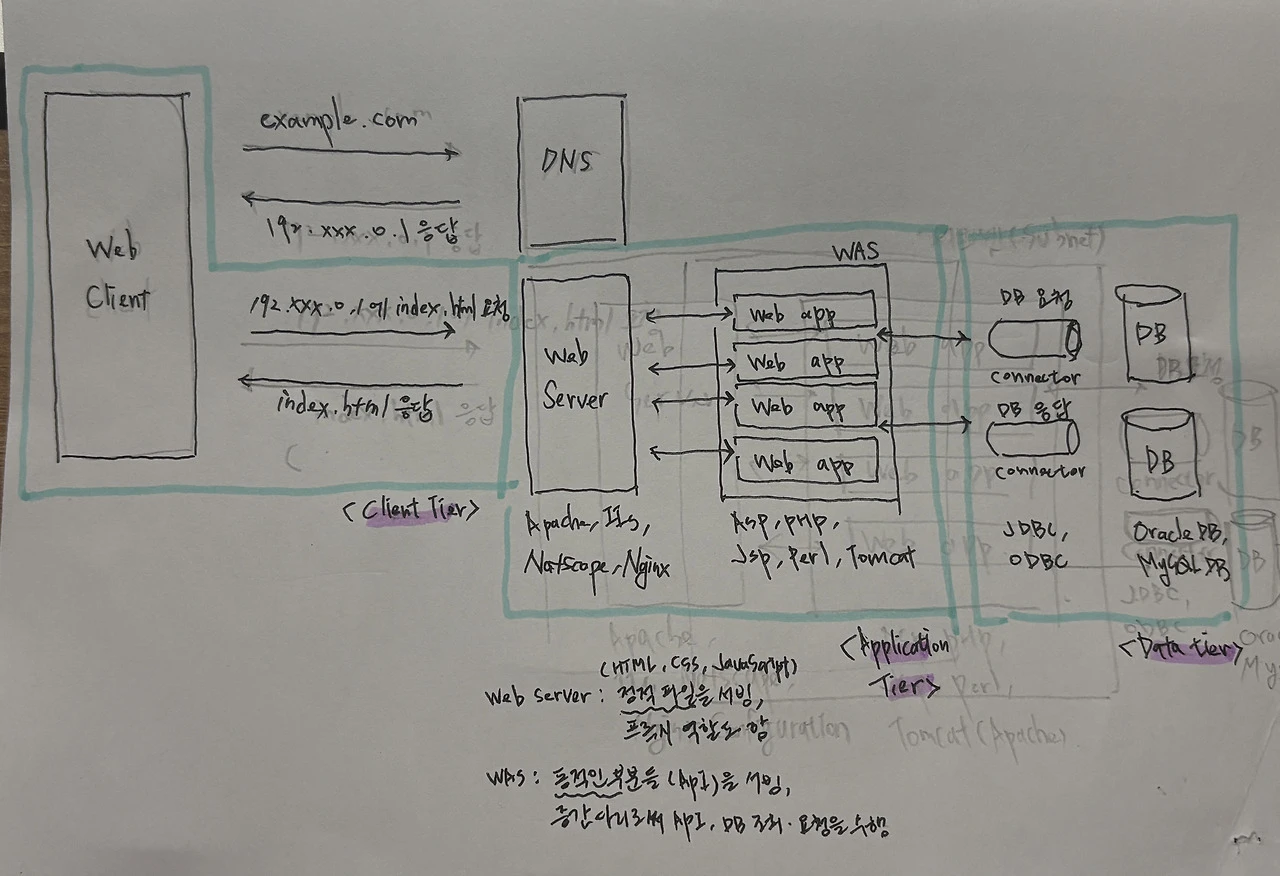 example.com
192.xxx.0.1 응답
Web
Client
DNS
192.xxx.0.1에 index.html 요청
index.html 응답
<Client Tier>
Web
Server
Apache, IIS,
Natscope, Nginx
WAS
Web app
Web app
Web app
Web app
Asp, PHP,
Jsp, Perl, Tomcat
<Application
Tier>
DB 요청
connector
DB 응답
connector
JDBC,
ODBC
DB
DB
Oracle DB,
MySQL DB
<Data tier>
(HTML, CSS, JavaScript)
Web server : 정적 파일을 서빙,
프록시 역할도 함
WAS : 동적인 부분들 (API)을 서빙,
중간다리로써 API, DB 조회·요청을 수행
(Subnet)
Tomcat (Apache)